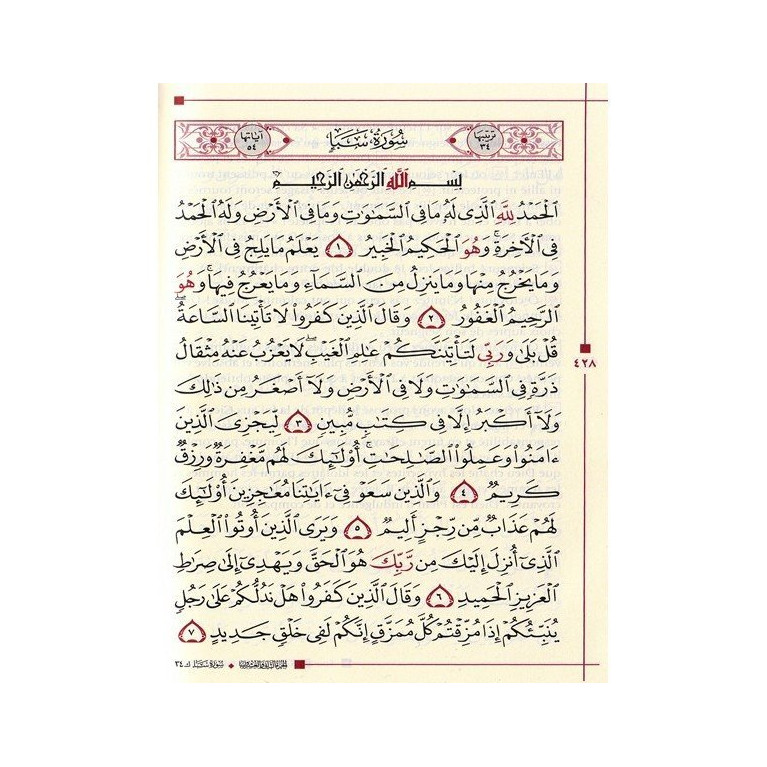 ترتيبها ٣٤ سُورَةُ سَبَإٍ آياتها ٥٤
بِسْمِ ٱللَّهِ ٱلرَّحْمَٰنِ ٱلرَّحِيمِ
ٱلْحَمْدُ لِلَّهِ ٱلَّذِى لَهُۥ مَا فِى ٱلسَّمَٰوَٰتِ وَمَا فِى ٱلْأَرْضِ وَلَهُ ٱلْحَمْدُ
فِى ٱلْءَاخِرَةِ ۚ وَهُوَ ٱلْحَكِيمُ ٱلْخَبِيرُ ١ يَعْلَمُ مَا يَلِجُ فِى ٱلْأَرْضِ
وَمَا يَخْرُجُ مِنْهَا وَمَا يَنزِلُ مِنَ ٱلسَّمَآءِ وَمَا يَعْرُجُ فِيهَا ۚ وَهُوَ
ٱلرَّحِيمُ ٱلْغَفُورُ ٢ وَقَالَ ٱلَّذِينَ كَفَرُوا۟ لَا تَأْتِينَا ٱلسَّاعَةُ ۖ
قُلْ بَلَىٰ وَرَبِّى لَتَأْتِيَنَّكُمْ عَٰلِمِ ٱلْغَيْبِ ۖ لَا يَعْزُبُ عَنْهُ مِثْقَالُ
ذَرَّةٍ فِى ٱلسَّمَٰوَٰتِ وَلَا فِى ٱلْأَرْضِ وَلَآ أَصْغَرُ مِن ذَٰلِكَ
وَلَآ أَكْبَرُ إِلَّا فِى كِتَٰبٍ مُّبِينٍ ٣ لِّيَجْزِىَ ٱلَّذِينَ
ءَامَنُوا۟ وَعَمِلُوا۟ ٱلصَّٰلِحَٰتِ ۚ أُو۟لَٰٓئِكَ لَهُم مَّغْفِرَةٌ وَرِزْقٌ
كَرِيمٌ ٤ وَٱلَّذِينَ سَعَوْ فِىٓ ءَايَٰتِنَا مُعَٰجِزِينَ أُو۟لَٰٓئِكَ
لَهُمْ عَذَابٌ مِّن رِّجْزٍ أَلِيمٌ ٥ وَيَرَى ٱلَّذِينَ أُوتُوا۟ ٱلْعِلْمَ
ٱلَّذِىٓ أُنزِلَ إِلَيْكَ مِن رَّبِّكَ هُوَ ٱلْحَقَّ وَيَهْدِىٓ إِلَىٰ صِرَٰطِ
ٱلْعَزِيزِ ٱلْحَمِيدِ ٦ وَقَالَ ٱلَّذِينَ كَفَرُوا۟ هَلْ نَدُلُّكُمْ عَلَىٰ رَجُلٍ
يُنَبِّئُكُمْ إِذَا مُزِّقْتُمْ كُلَّ مُمَزَّقٍ إِنَّكُمْ لَفِى خَلْقٍ جَدِيدٍ ٧
٤٢٨
الجزء الثاني والعشرون ◆ سورة سبأ ك ٣٤